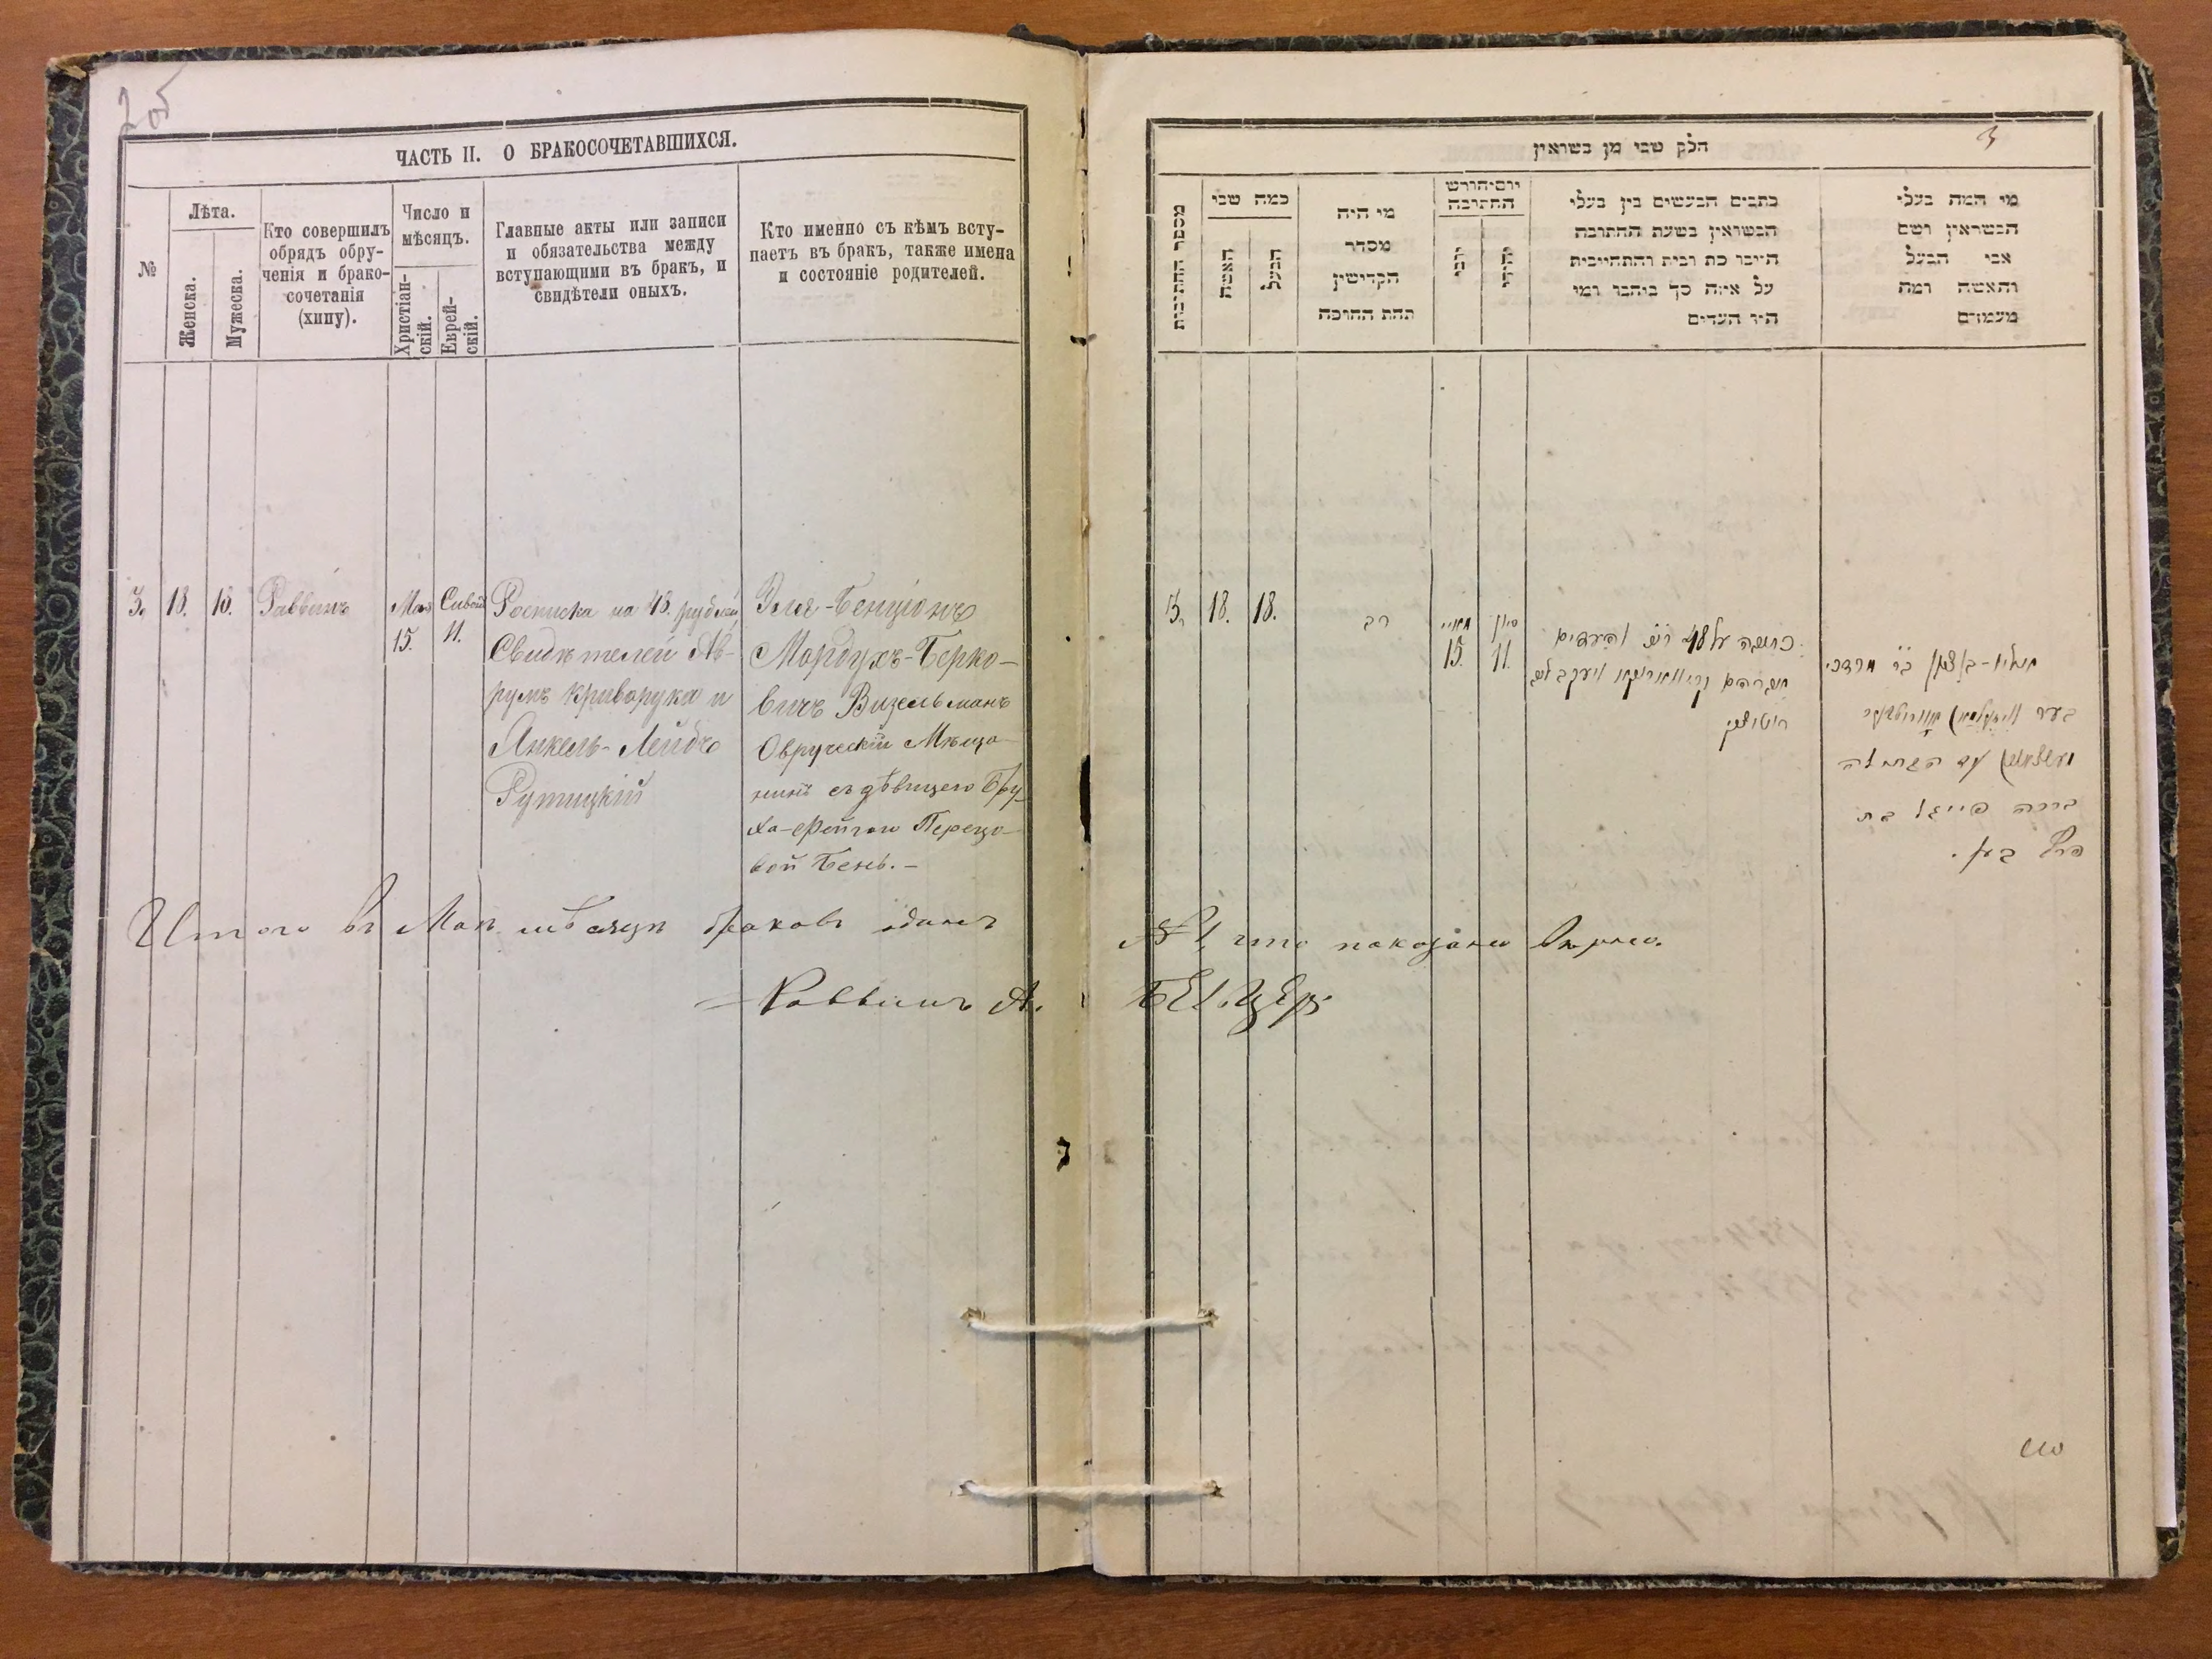 2 об
ЧАСТЬ II. О БРАКОСОЧЕТАВШИХСЯ.
№
Лѣта.
Женска.
Мужеска.
Кто совершилъ
обрядъ обру-
ченія и брако-
сочетанія
(хипу).
Число и
мѣсяцъ.
Христіан-
скій.
Еврей-
скій.
Главные акты или записи
и обязательства между
вступающими въ бракъ, и
свидѣтели оныхъ.
Кто именно съ кѣмъ всту-
паетъ въ бракъ, также имена
и состояніе родителей.
3. 18. 18. Раввинъ
Мая
15.
Сивон
11.
Росписка на 48. рублей,
Свидѣтелей Аб-
румъ Криворука и
Янкель-Лейбъ
Рутицкій
Эля-Бенціонъ
Мордухъ-Берко-
вичъ Визельманъ
Овручскій Мѣща-
нинъ съ дѣвицею Бру-
ха-Фейгою Перецо-
вой Бенъ.-
Итого въ Маѣ мѣсяцѣ браковъ одинъ
№ 1, что показано вѣрно.
Раввинъ А.
3
חלק שני מן נשואין
מספר החתונות
כמה שני
האשה
הבעל
מי היה
מסדר
הקדישין
תחת החופה
יום וחודש
החתונה
כתבים הנעשים בין בעלי
הנשואין בשעת החתונה
היינו כת ובית והתחייבית
על איזה סך ביהבו ומי
היו העדים
מי המה בעלי
הנשואין ושם
אבי הבעל
והאשה ומה
מעמדם
3. 18. 18.
רב
מאיי
15.
סיון
11.
כתובה על 48 רו״כ והעדים
אברהם קריווארוקא ויעקב ליב
רוטיצקי
אליה-בן ציון ב״ר מרדכי
בער
עם הבתולה
ברכה פייגא בת
פרץ בען.